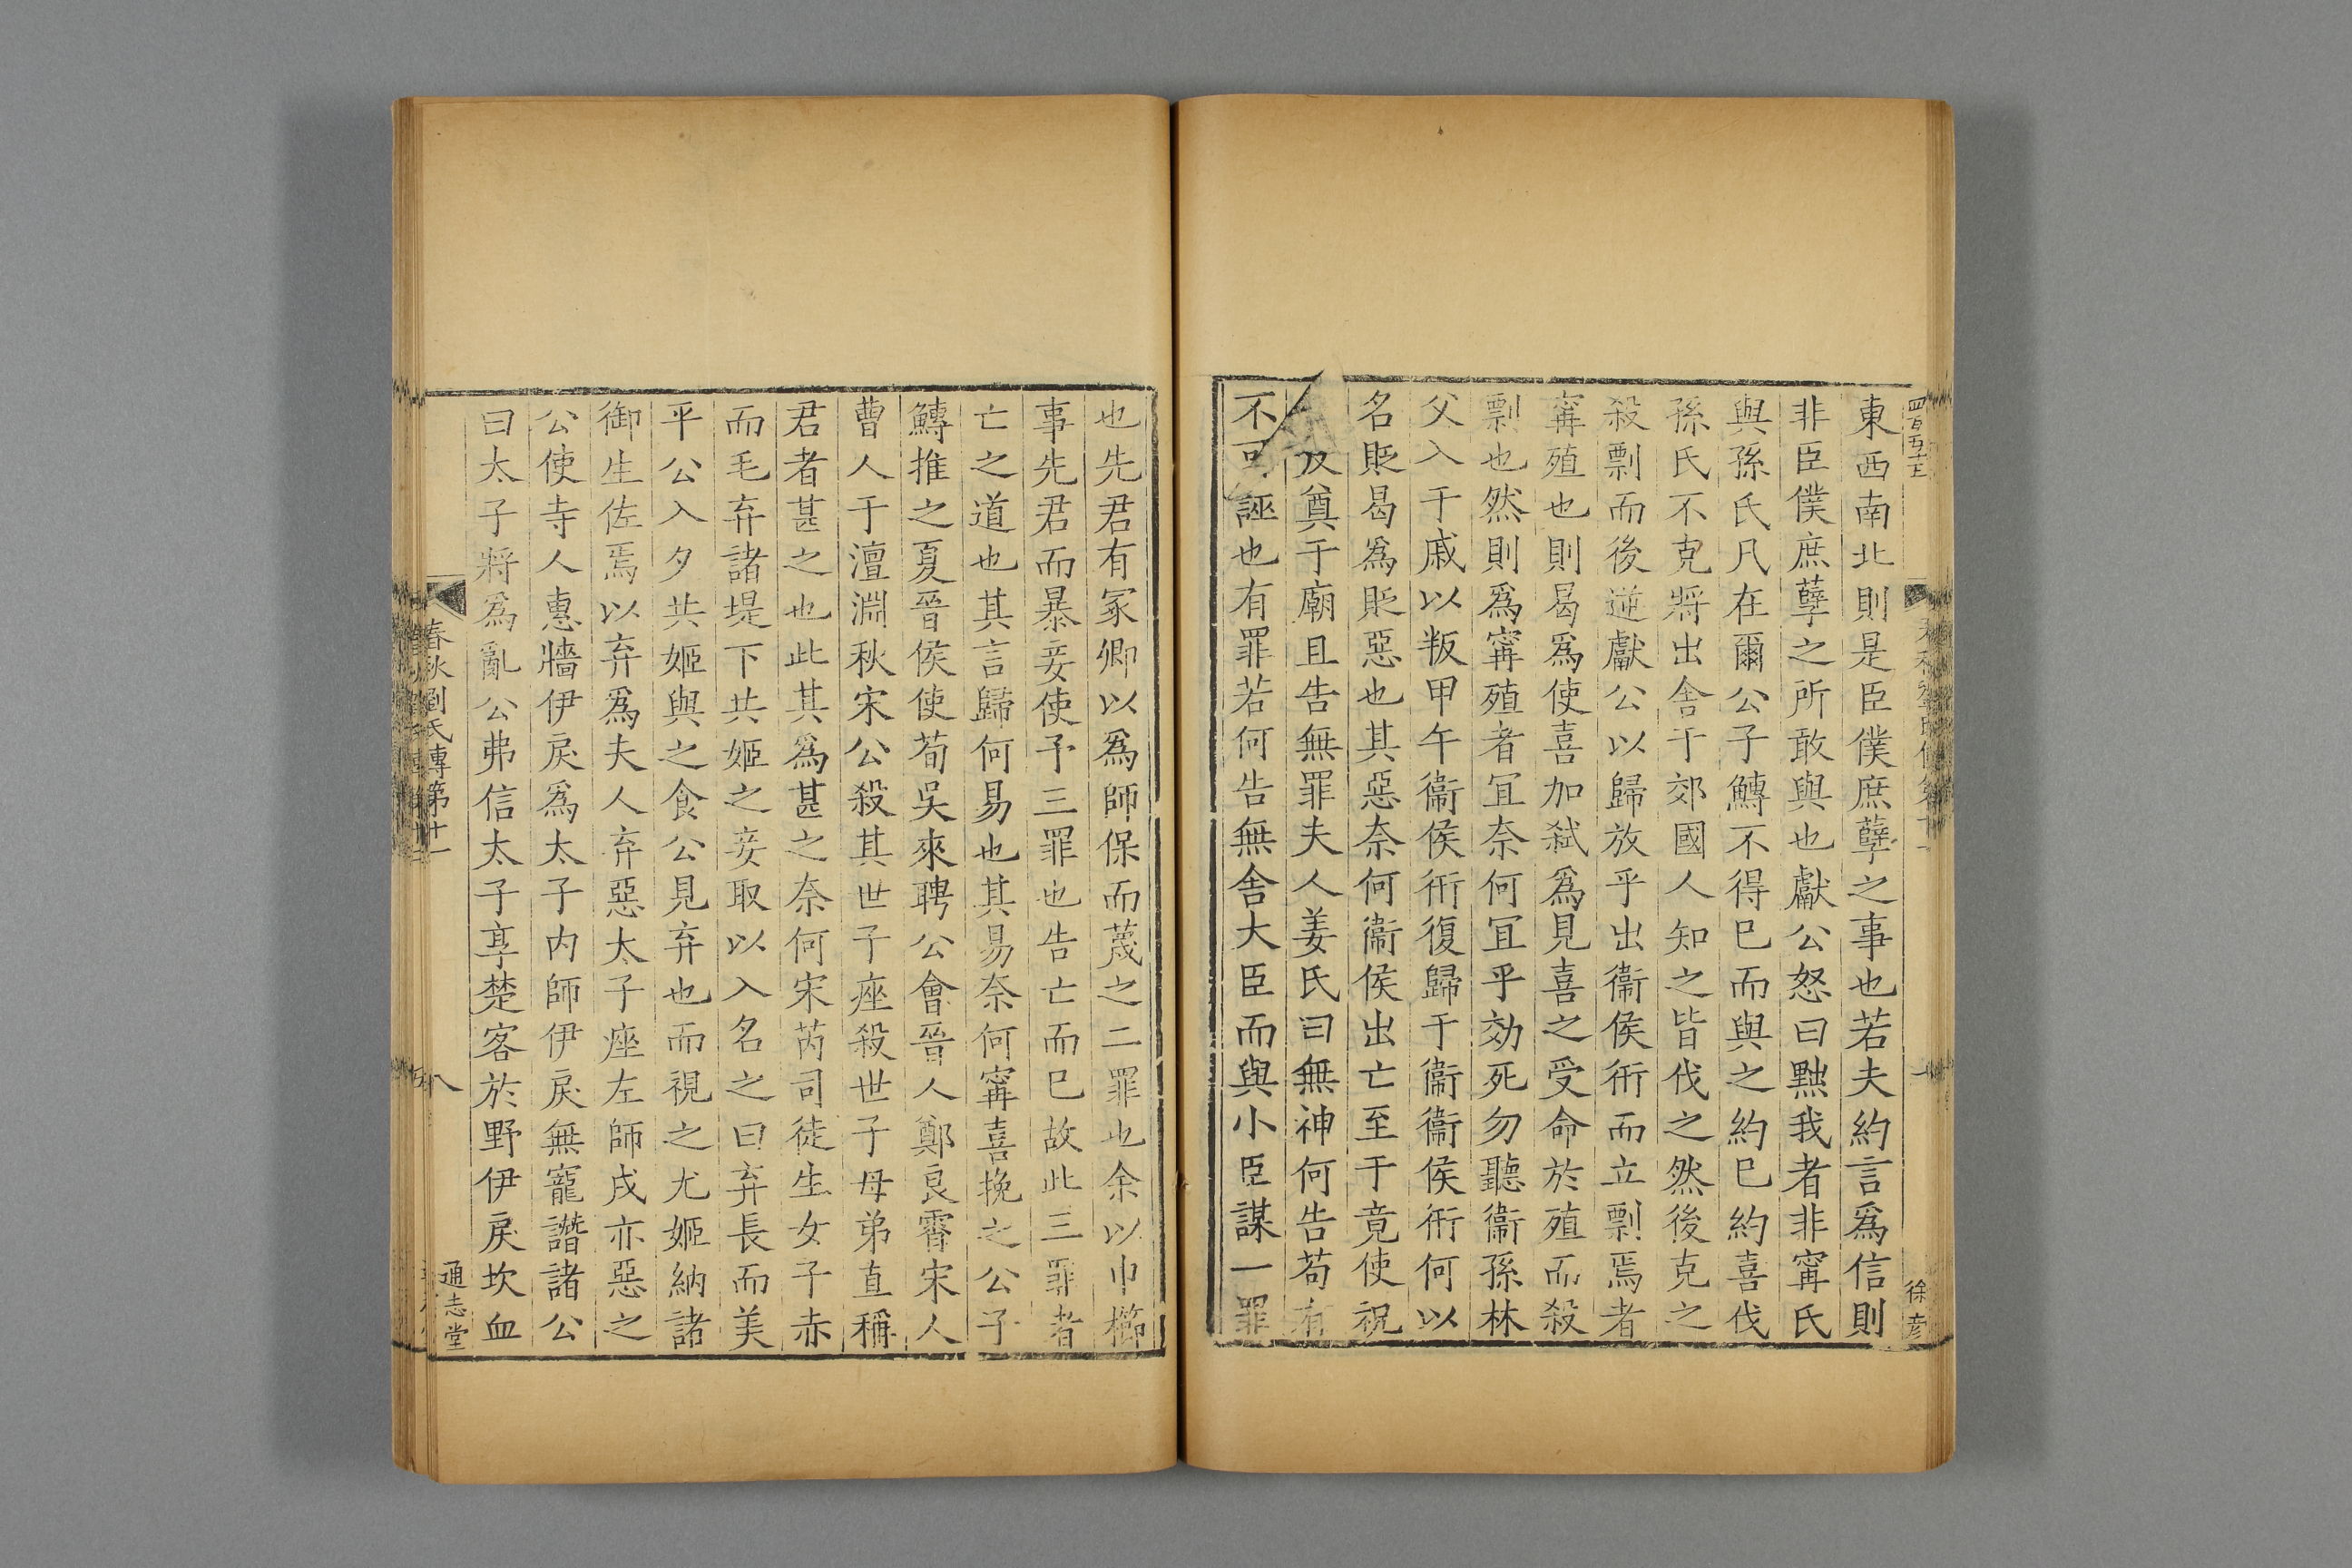 東西南北則是臣僕庶孽之事也若夫約言爲信則
非臣僕庶孽之所敢與也獻公怒曰黜我者非甯氏
與孫氏凡在爾公子鱄不得已而與之約已約喜伐
孫氏不克將出舍于郊國人知之皆伐之然後克之
殺剽而後逆獻公以歸放乎出衞侯衎而立剽焉者
甯殖也則曷爲使喜加弑爲見喜之受命於殖而殺
剽也然則爲甯殖者冝奈何冝乎効死勿聽衞孫林
父入于戚以叛甲午衞侯衎復歸于衞衞侯衎何以
名貶曷爲貶惡也其惡奈何衞侯出亡至于竟使祝
及奠于廟且告無罪夫人姜氏曰無神何告苟有
不可誣也有罪若何告無舍大臣而與小臣謀一罪
四百五十五
徐彦
也先君有冢卿以爲師保而蔑之二罪也余以巾櫛
事先君而暴妾使予三罪也告亡而已故此三罪者
亡之道也其言歸何易也其易奈何甯喜挽之公子
鱄推之夏晉侯使荀吳來聘公會晉人鄭良霄宋人
曹人于澶淵秋宋公殺其世子痤殺世子母弟直稱
君者甚之也此其爲甚之奈何宋芮司徒生女子赤
而毛弃諸堤下共姬之妾取以入名之曰弃長而美
平公入夕共姬與之食公見弃也而視之尤姬納諸
御生佐焉以弃爲夫人弃惡太子痤左師戌亦惡之
公使寺人惠牆伊戾爲太子内師伊戾無寵譖諸公
曰太子將爲亂公弗信太子享楚客於野伊戾坎血
春秋劉氏傳第十一
八
通志堂